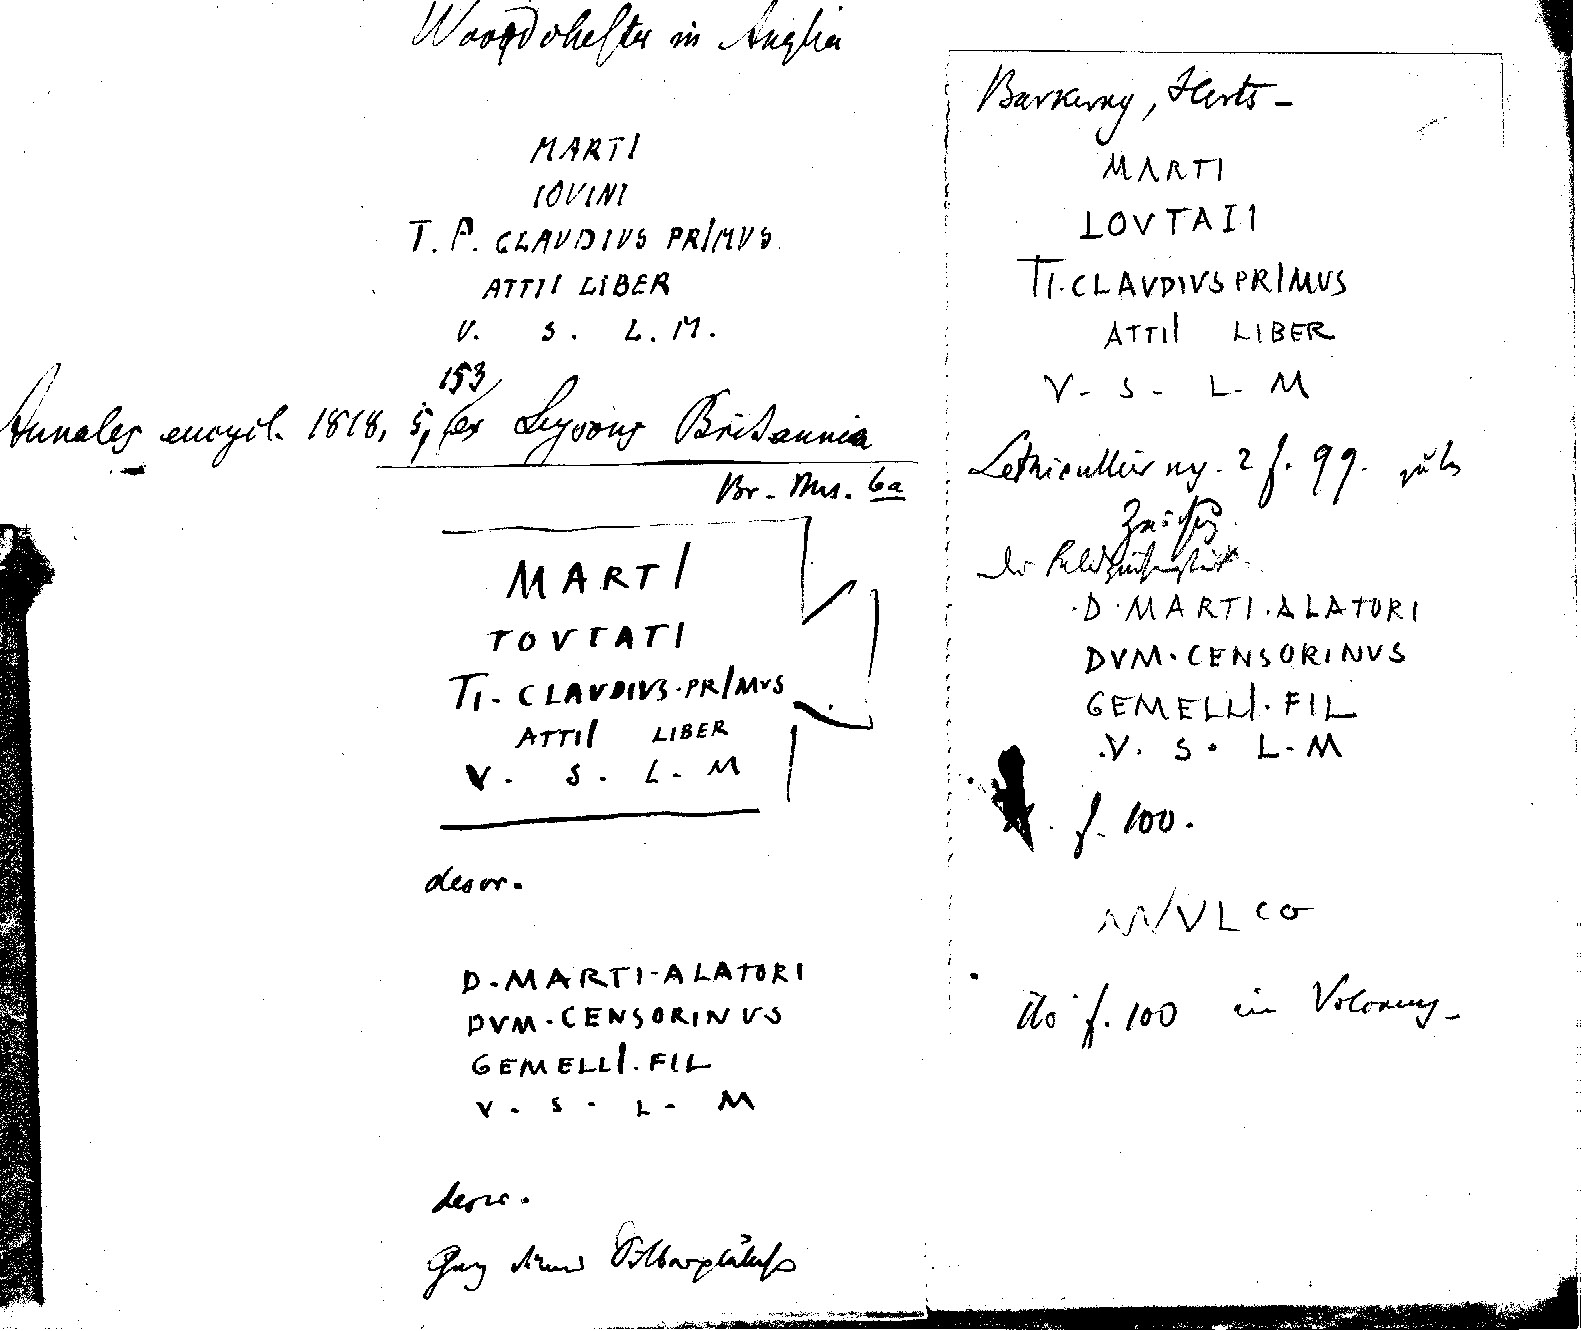 Woodchester in Anglia
MARTI
IOVINI
T. P. CLAUDIUS PRIMUS
ATTII LIBER
V. S. L. M.
153
Annales encycl. 1818, 5, ex Lysons Britannia
Br. Mus. 6a
MARTI
TOVTATI
TI. CLAVDIVS. PRIMVS
ATTII LIBER
V. S. L. M
descr.
D. MARTI. ALATORI
DVM. CENSORINVS
GEMELLI. FIL
V. S. L. M
descr.
Silberplättchen
Barkway, Herts
MARTI
LOVTAII
TI. CLAVDIVS PRIMUS
ATTII LIBER
V. S. L. M
2 f. 99.
D. MARTI. ALATORI
DVM. CENSORINVS
GEMELLI. FIL
V. S. L. M
f. 100.
VLCO
f. 100 in